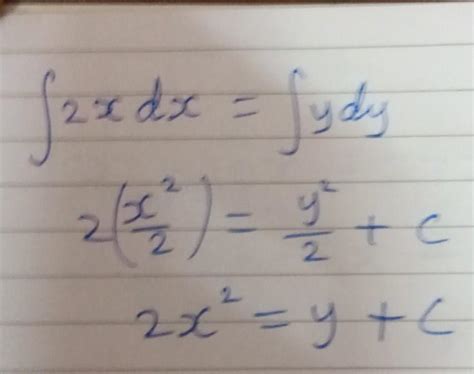 ∫2x dx = ∫y dy
2(x²/2) = y²/2 + c
2x² = y + c